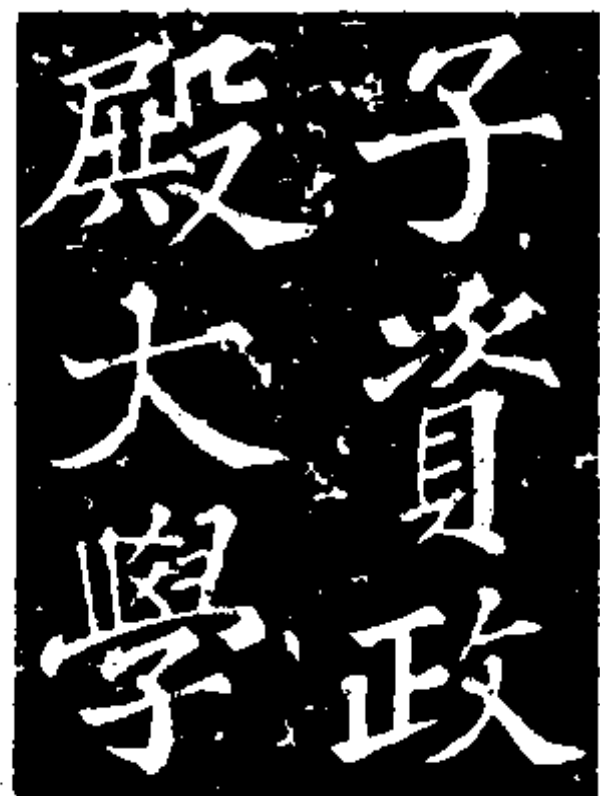 子資政
殿大學